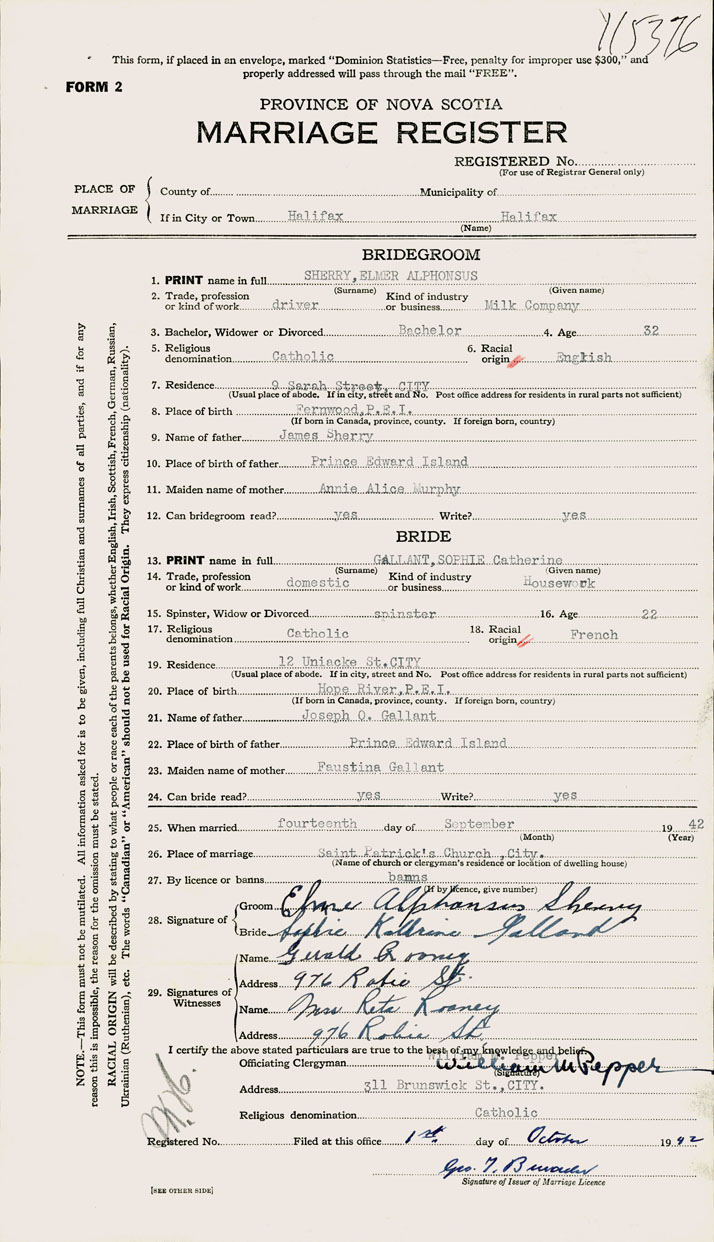 115376
This form, if placed in an envelope, marked "Dominion Statistics—Free, penalty for improper use $300," and
properly addressed will pass through the mail "FREE".
FORM 2
PROVINCE OF NOVA SCOTIA
MARRIAGE REGISTER
REGISTERED No.
(For use of Registrar General only)
PLACE OF MARRIAGE
County of Municipality of
If in City or Town Halifax Halifax
(Name)
BRIDEGROOM
1. PRINT name in full SHERRY,ELMER ALPHONSUS
(Surname) (Given name)
2. Trade, profession or kind of work driver Kind of industry or business Milk Company
3. Bachelor, Widower or Divorced Bachelor 4. Age 32
5. Religious denomination Catholic 6. Racial origin English
7. Residence 9 Sarah Street, CITY
(Usual place of abode. If in city, street and No. Post office address for residents in rural parts not sufficient)
8. Place of birth Fernwood,P.E.I.
(If born in Canada, province, county. If foreign born, country)
9. Name of father James Sherry
10. Place of birth of father Prince Edward Island
11. Maiden name of mother Annie Alice Murphy
12. Can bridegroom read? yes Write? yes
BRIDE
13. PRINT name in full GALLANT,SOPHIE Catherine
(Surname) (Given name)
14. Trade, profession or kind of work domestic Kind of industry or business Housework
15. Spinster, Widow or Divorced spinster 16. Age 22
17. Religious denomination Catholic 18. Racial origin French
19. Residence 12 Uniacke St.CITY
(Usual place of abode. If in city, street and No. Post office address for residents in rural parts not sufficient)
20. Place of birth Hope River,P.E.I.
(If born in Canada, province, county. If foreign born, country)
21. Name of father Joseph O. Gallant
22. Place of birth of father Prince Edward Island
23. Maiden name of mother Faustina Gallant
24. Can bride read? yes Write? yes
25. When married fourteenth day of September 19 42
(Month) (Year)
26. Place of marriage Saint Patrick's Church ,City.
(Name of church or clergyman's residence or location of dwelling house)
27. By licence or banns banns
(If by licence, give number)
28. Signature of
Groom Elmer Alphonsus Sherry
Bride Sophie Kathrine Gallant
29. Signatures of Witnesses
Name Gerald Rooney
Address 976 Robie St.
Name Mrs Reta Rooney
Address 976 Robie St.
I certify the above stated particulars are true to the best of my knowledge and belief.
William M. Pepper
Officiating Clergyman William M Pepper
(Signature)
Address 311 Brunswick St.,CITY.
Religious denomination Catholic
Registered No. Filed at this office 1st day of October 1942
Signature of Issuer of Marriage Licence
[SEE OTHER SIDE]
NOTE.—This form must not be mutilated. All information asked for is to be given, including full Christian and surnames of all parties, and if for any
reason this is impossible, the reason for the omission must be stated.
RACIAL ORIGIN will be described by stating to what people or race each of the parents belongs, whether English, Irish, Scottish, French, German, Russian,
Ukrainian (Ruthenian), etc. The words "Canadian" or "American" should not be used for Racial Origin. They express citizenship (nationality).